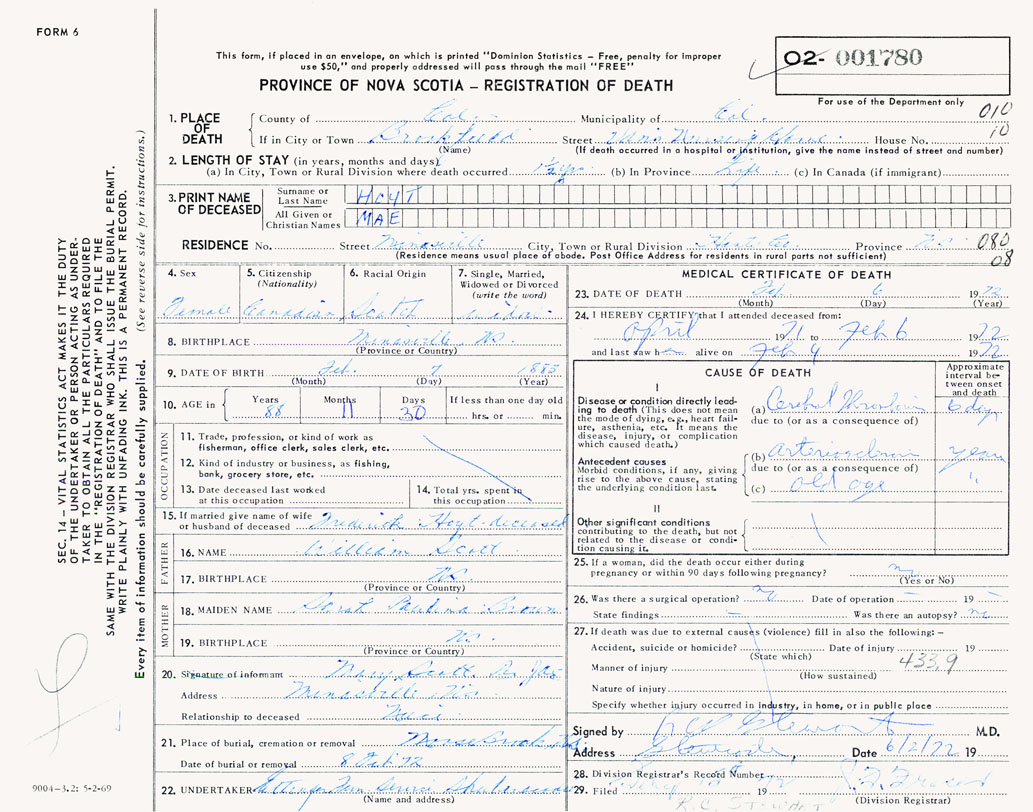 FORM 6
This form, if placed in an envelope, on which is printed "Dominion Statistics – Free, penalty for improper
use $50," and properly addressed will pass through the mail "FREE"
PROVINCE OF NOVA SCOTIA – REGISTRATION OF DEATH
O2- 001780
For use of the Department only
010
10
1. PLACE OF DEATH
County of Col. Municipality of Col.
If in City or Town Brookfield Street Nursing Home House No.
(Name) (If death occurred in a hospital or institution, give the name instead of street and number)
2. LENGTH OF STAY (in years, months and days)
(a) In City, Town or Rural Division where death occurred 1½ yrs (b) In Province Life (c) In Canada (if immigrant)
3. PRINT NAME OF DECEASED
Surname or Last Name HOYT
All Given or Christian Names MAE
RESIDENCE No. Street Minasville City, Town or Rural Division Hants Co. Province N.S. 080
(Residence means usual place of abode. Post Office Address for residents in rural parts not sufficient) 08
4. Sex
Female
5. Citizenship (Nationality)
Canadian
6. Racial Origin
Scotch
7. Single, Married, Widowed or Divorced (write the word)
widow
8. BIRTHPLACE Minasville, N.S.
(Province or Country)
9. DATE OF BIRTH Feb. 7 1883
(Month) (Day) (Year)
10. AGE in
Years 88
Months 11
Days 30
If less than one day old
hrs. or min.
OCCUPATION
11. Trade, profession, or kind of work as
fisherman, office clerk, sales clerk, etc.
12. Kind of industry or business, as fishing,
bank, grocery store, etc.
13. Date deceased last worked
at this occupation
14. Total yrs. spent in
this occupation
15. If married give name of wife
or husband of deceased Frederick Hoyt - deceased
FATHER
16. NAME William Scott
17. BIRTHPLACE N.S.
(Province or Country)
MOTHER
18. MAIDEN NAME Brown
19. BIRTHPLACE N.S.
(Province or Country)
20. Signature of informant Mary Scott
Address Minasville N.S.
Relationship to deceased Niece
21. Place of burial, cremation or removal Moose Brook N.S.
Date of burial or removal 8 Feb 72
22. UNDERTAKER
(Name and address)
MEDICAL CERTIFICATE OF DEATH
23. DATE OF DEATH Feb. 6 1972
(Month) (Day) (Year)
24. I HEREBY CERTIFY that I attended deceased from:
April 71 to Feb 6 1972
and last saw her alive on Feb 4 1972
CAUSE OF DEATH
Approximate interval between onset and death
I
Disease or condition directly leading
to death (This does not mean
the mode of dying, e.g., heart failure,
asthenia, etc. It means the
disease, injury, or complication
which caused death.)
(a) Cerebral Thrombosis 6 days
due to (or as a consequence of)
Antecedent causes
Morbid conditions, if any, giving
rise to the above cause, stating
the underlying condition last.
(b) Arteriosclerosis years
due to (or as a consequence of)
(c) old age "
II
Other significant conditions
contributing to the death, but not
related to the disease or condition
causing it.
25. If a woman, did the death occur either during
pregnancy or within 90 days following pregnancy? no
(Yes or No)
26. Was there a surgical operation? no Date of operation – 19 –
State findings – Was there an autopsy? no
27. If death was due to external causes (violence) fill in also the following: –
Accident, suicide or homicide? Date of injury 19
(State which) 433.9
Manner of injury
(How sustained)
Nature of injury
Specify whether injury occurred in industry, in home, or in public place
Signed by R C Stewart M.D.
Address Date 6/2/72 19
28. Division Registrar's Record Number
29. Filed 19
(Division Registrar)
R.C. STEWART
SEC. 14 – VITAL STATISTICS ACT MAKES IT THE DUTY
OF THE UNDERTAKER OR PERSON ACTING AS UNDERTAKER
TO OBTAIN ALL THE PARTICULARS REQUIRED
IN THE "REGISTRATION OF DEATH" AND TO FILE THE
SAME WITH THE DIVISION REGISTRAR WHO SHALL ISSUE THE BURIAL PERMIT.
WRITE PLAINLY WITH UNFADING INK. THIS IS A PERMANENT RECORD.
Every item of information should be carefully supplied. (See reverse side for instructions.)
9004-3.2: 5-2-69